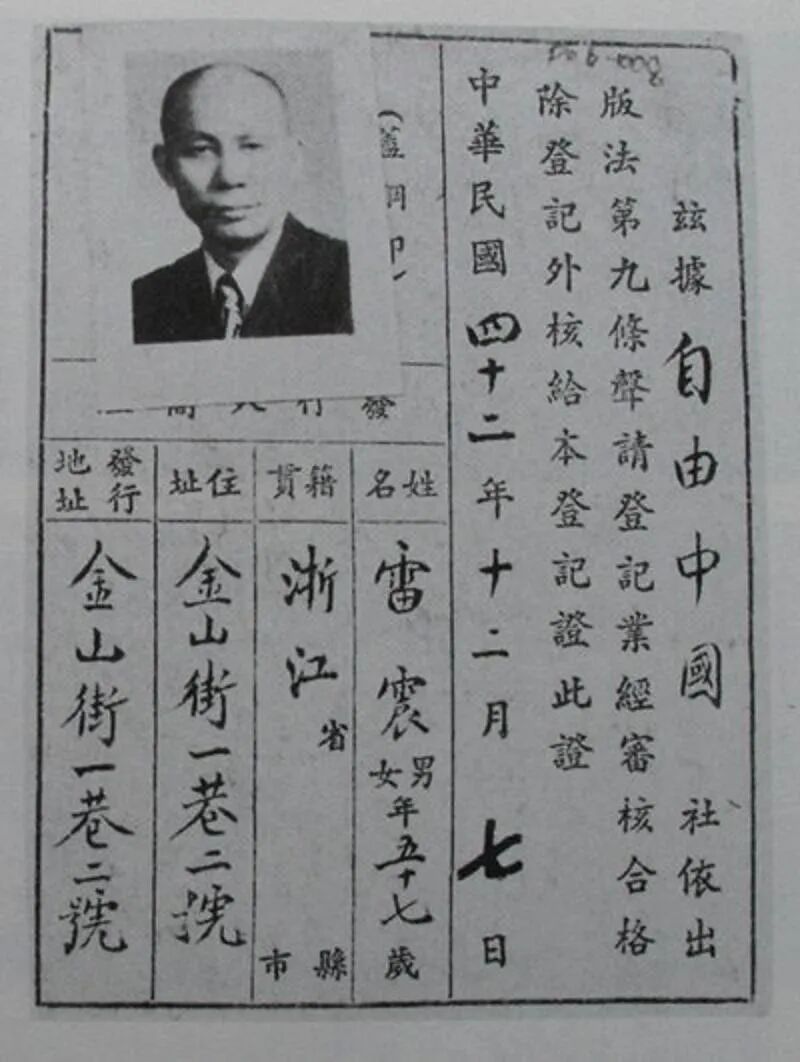 茲據自由中國社依出
版法第九條聲請登記業經審核合格
除登記外核給本登記證此證
中華民國四十二年十二月七日
(蓋鋼印)
發行人
姓名
雷震男女年五十七歲
籍貫
浙江省縣市
住址
金山街一巷二號
發行地址
金山街一巷二號